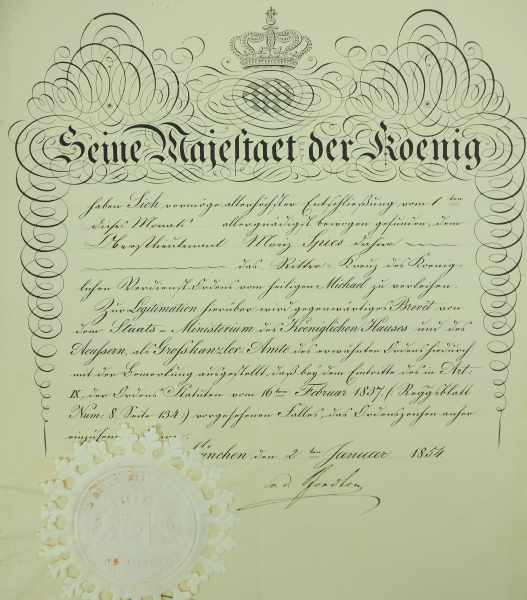 Seine Majestaet der Koenig
haben Sich vermöge allerhöchster Entschließung vom 1ten
dieses Monats allergnädigst bewogen gefunden, dem
Oberstlieutenant Max Spies dahier
das Ritter-Kreuz des Koenig-
lichen Verdienst-Ordens vom heiligen Michael zu verleihen.
Zur Legitimation hierüber wird gegenwärtiges Brevet von
dem Staats-Ministerium des Koeniglichen Hauses und des
Aeussern, als Großkanzler-Amte des erwähnten Ordens hiedurch
mit der Bemerkung ausgestellt, daß bey dem Eintritte des in Art:
IX. der Ordens Statuten vom 16ten Februar 1837. (Reggsblatt
Num: 8 Seite 134.) vorgesehenen Falles, das Ordenszeichen anher
München den 2ten Januar 1854